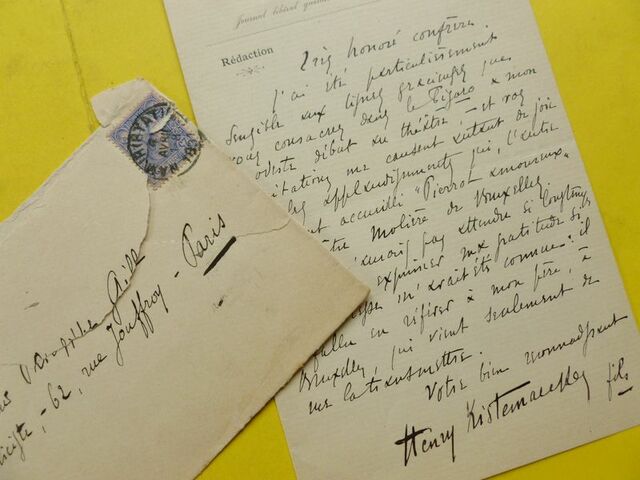 Journal libéral quotidien
Rédaction
Très honoré confrère,
J'ai été particulièrement
sensible aux lignes gracieuses que
vous consacrez dans le Figaro à mon
modeste début au théâtre, et vos
félicitations me causent autant de joie
les applaudissements qui, l'autre
accueilli "Pierrot amoureux"
Molière de Bruxelles
pas attendre si longtemps
exprimer ma gratitude si
m'avait été connue: il
fallu en référer à mon père, à
Bruxelles, qui vient seulement de
me la transmettre.
Votre bien reconnaissant
Henry Kistemaeckers fils
62, rue Jouffroy - Paris